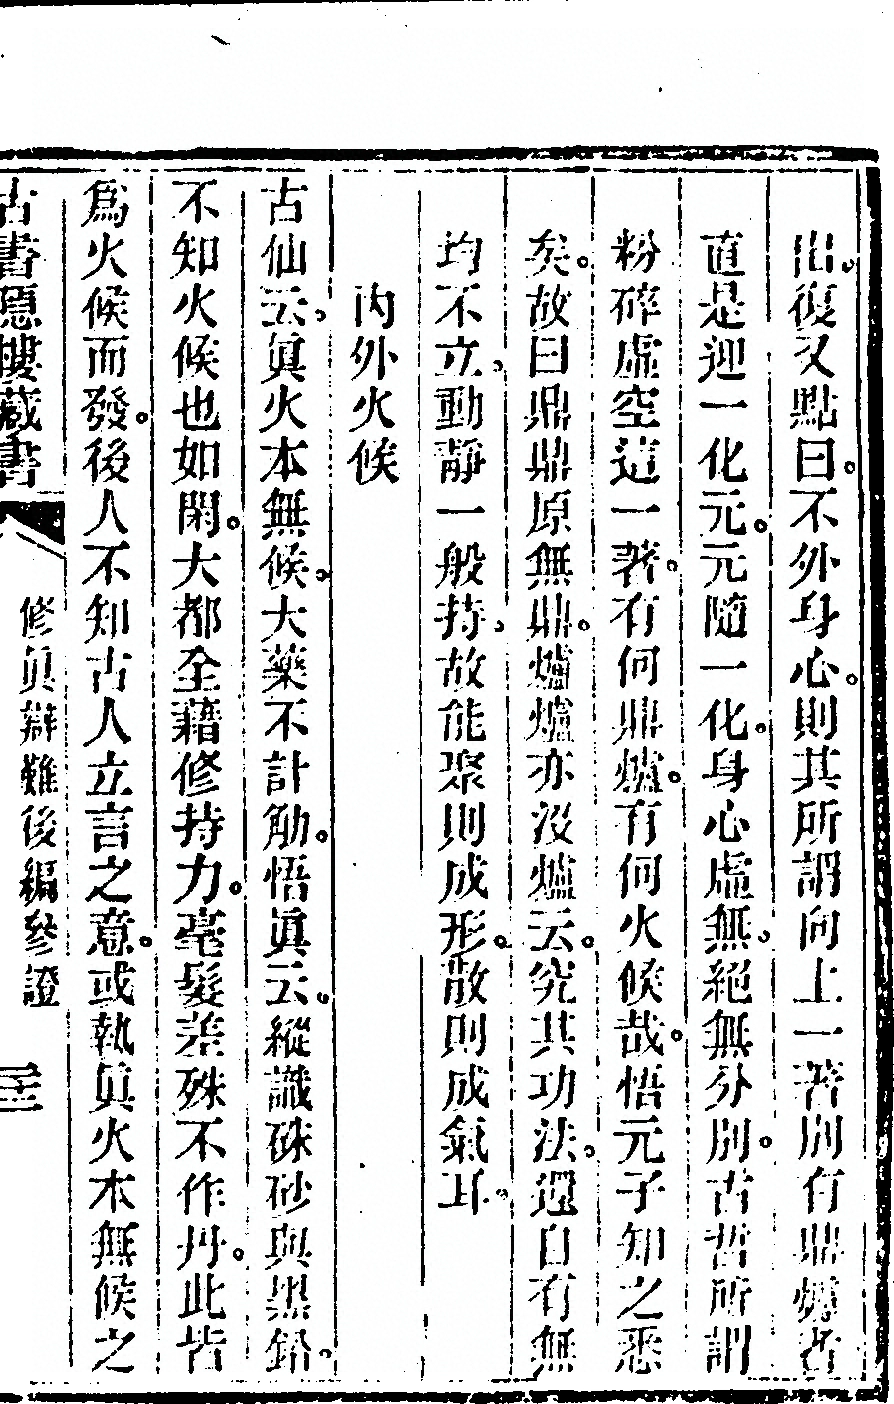 出。復又點曰。不外身心。則其所謂向上一著別有鼎爐者
直是迎一化元。元隨一化。身心虛無。絕無分別。古哲所謂
粉碎虛空這一著。有何鼎爐。有何火候哉。悟元子知之悉
矣。故曰鼎鼎原無鼎。爐爐亦沒爐。云。究其功法。還自有無
均不立。動靜一般持。故能聚則成形。散則成氣耳。
內外火候
古仙云。眞火本無候。大藥不計觔。悟眞云。縱識硃砂與黑鉛。
不知火候也如閑。大都全藉修持力。毫髮差殊不作丹。此皆
為火候而發。後人不知古人立言之意。或執眞火本無候之
古書隱樓藏書
修眞辯難後編參證